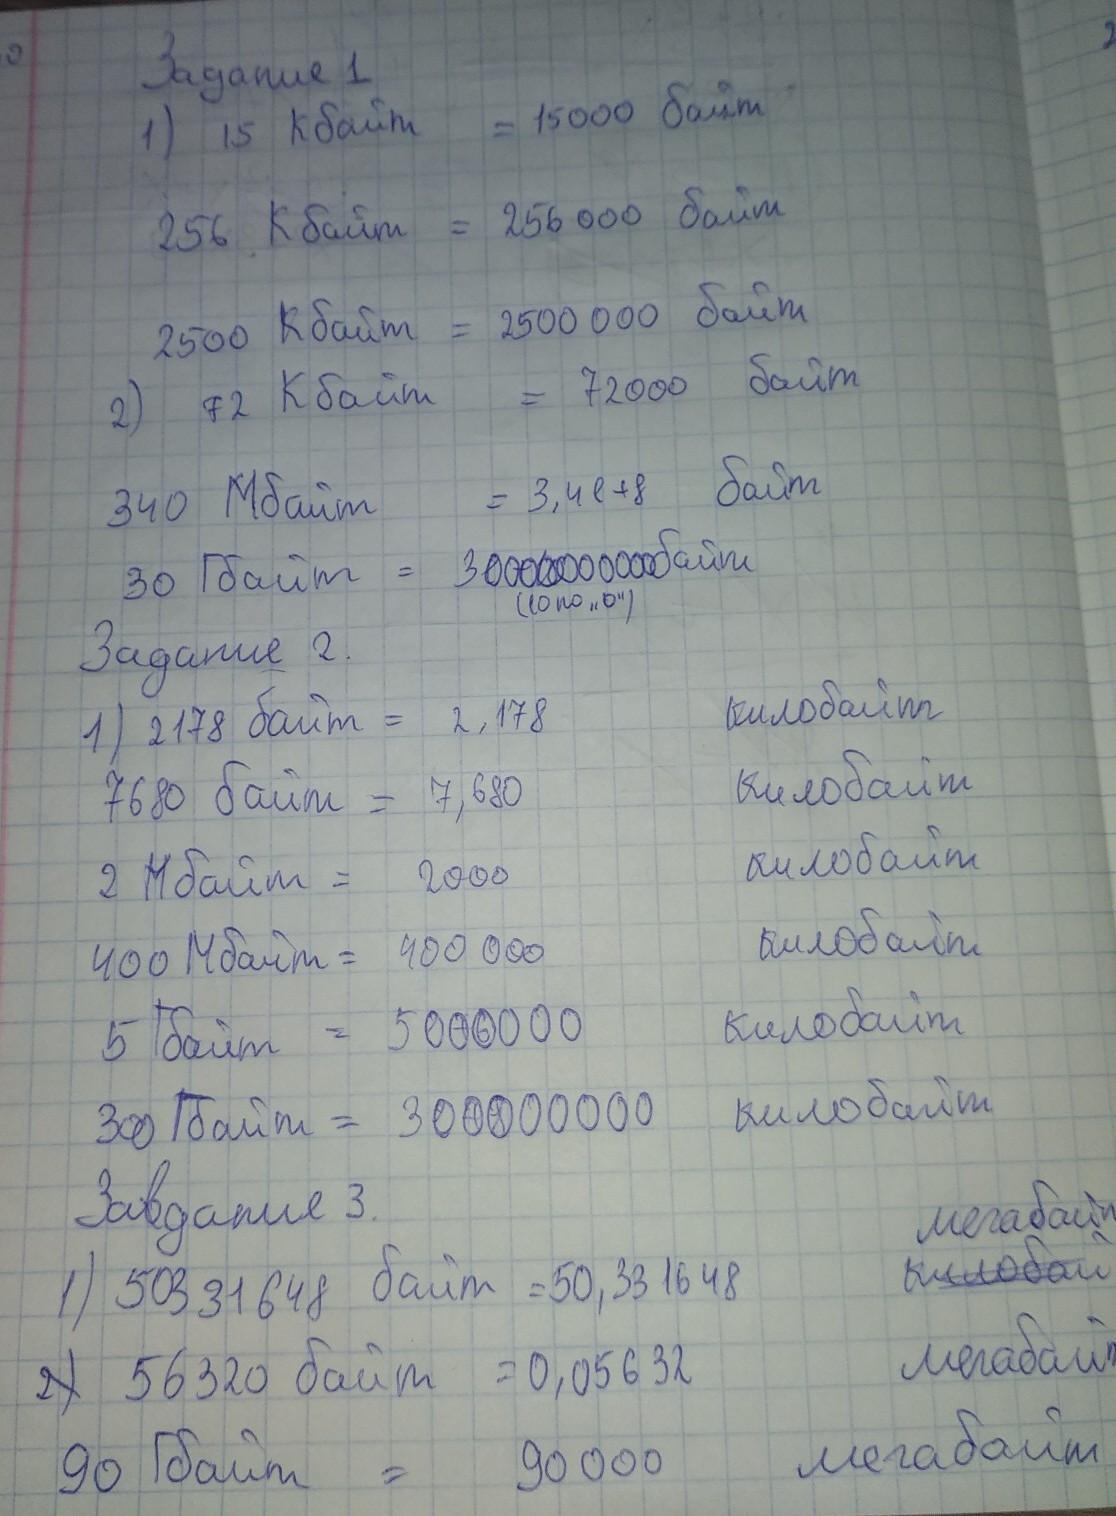 Задание 1
1) 15 Кбайт = 15000 байт
256 Кбайт = 256 000 байт
2500 Кбайт = 2500 000 байт
2) 72 Кбайт = 72000 байт
340 Мбайт = 3,4e+8 байт
30 Гбайт = 30000000000байт
(10 по „0“)
Задание 2.
1) 2178 байт = 2,178 килобайт
7680 байт = 7,680 килобайт
2 Мбайт = 2000 килобайт
400 Мбайт = 400 000 килобайт
5 Гбайт = 5000000 килобайт
300 Гбайт = 300000000 килобайт
Завдание 3.
мегабайт
1) 50331648 байт =50,331648 килобай
2) 56320 байт =0,05632 мегабайт
90 Гбайт = 90 000 мегабайт